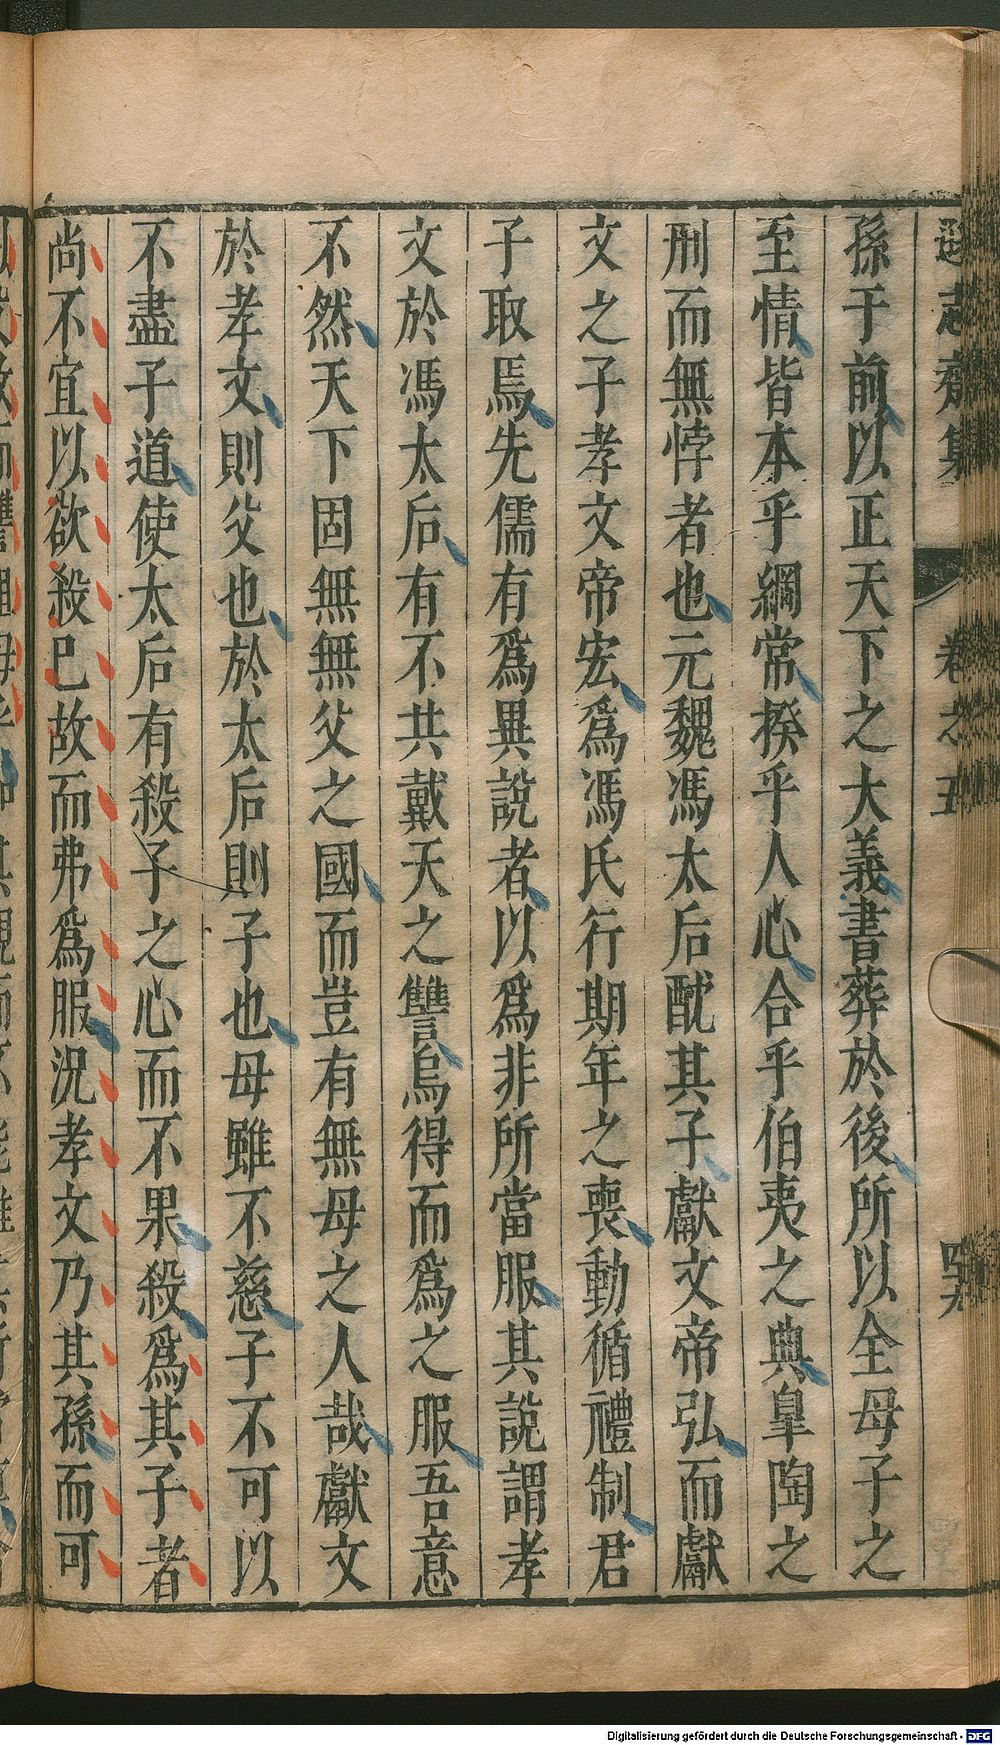 遜志齋集 卷之五 四九
孫于前以正天下之大義書葬於後所以全母子之
至情皆本乎綱常揆乎人心合乎伯夷之典皐陶之
刑而無悖者也元魏馮太后酖其子獻文帝弘而獻
文之子孝文帝宏爲馮氏行期年之喪動循禮制君
子取焉先儒有爲異說者以爲非所當服其說謂孝
文於馮太后有不共戴天之讐烏得而爲之服吾意
不然天下固無無父之國而豈有無母之人哉獻文
於孝文則父也於太后則子也母雖不慈子不可以
不盡子道使太后有殺子之心而不果殺爲其子者
尚不宜以欲殺已故而弗爲服況孝文乃其孫而可
Digitalisierung gefördert durch die Deutsche Forschungsgemeinschaft - DFG